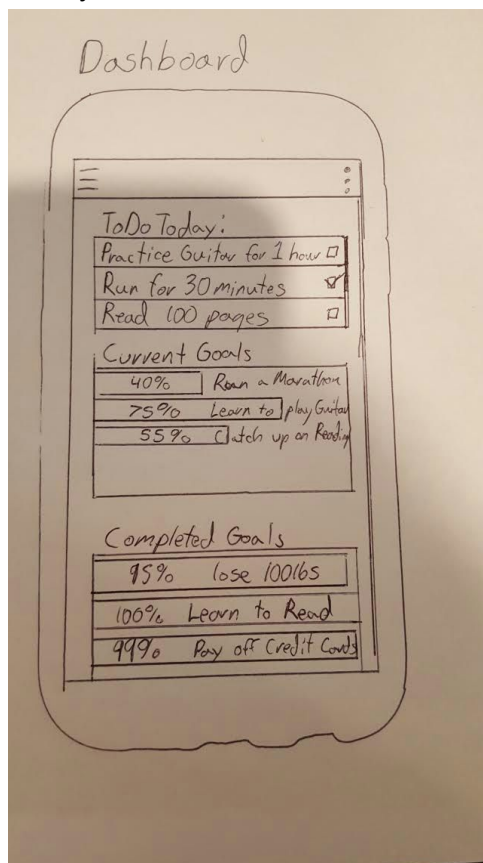 Dashboard
ToDo Today:
Practice Guitar for 1 hour
Run for 30 minutes
Read 100 pages
Current Goals
40% Run a Marathon
75% Learn to play Guitar
55% Catch up on Reading
Completed Goals
95% lose 100lbs
100% Learn to Read
99% Pay off Credit Cards